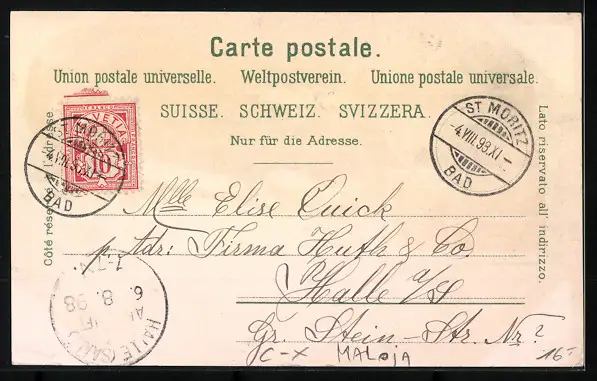 Carte postale.
Union postale universelle. Weltpostverein. Unione postale universale.
SUISSE. SCHWEIZ. SVIZZERA.
Nur für die Adresse.
Côté réservé à l'adresse
Lato riservato all' indirizzo.
HELVETIA
10
ST MORITZ
4.VIII.98.XI-
BAD
ST MORITZ
-4.VIII.98.XI-
BAD
Mlle Elise Quick
p. Adr: Firma Huth & Co.
Halle a/S
Gr. Stein-Str. Nr?
HALLE (SAALE)
6. 8. 98
C-X MALOJA
16-